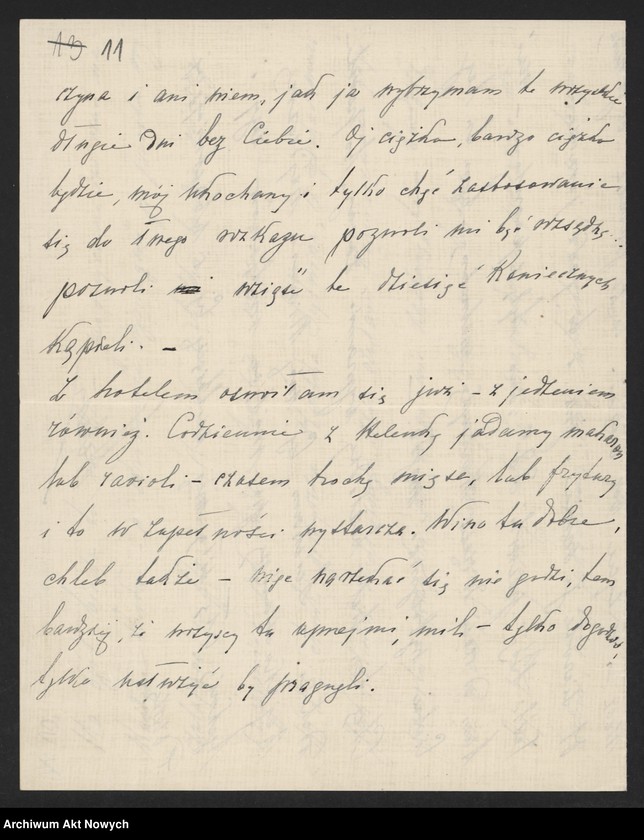 13 11
czyna i ani wiem, jak ja wytrzymam te wszystkie
długie dni bez Ciebie. Oj ciężko, bardzo ciężko
będzie, mój ukochany i tylko chęć zastosowania
się do Twego rozkazu pozwoli mi być rozsądną...
pozwoli mi wziąść te dziesięć koniecznych
kąpieli. –
Z hotelem oswoiłam się już – z jedzeniem
również. Codziennie z Helenką jadamy makaron
lub ravioli – czasem trochę mięsa, lub frytury
i to w zupełności wystarcza. Wino tu dobre,
chleb także – więc narzekać się nie godzi, tem
bardziej, że wszyscy tu uprzejmi, mili – tylko dogodzić,
tylko usłużyć by pragnęli.
Archiwum Akt Nowych